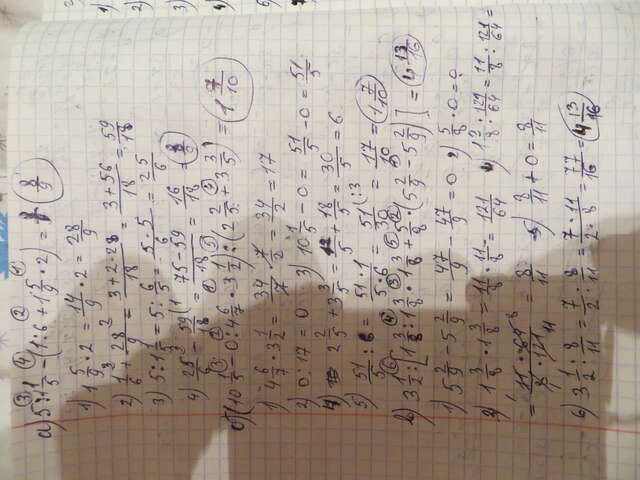 а) 5:1 1/5 - (1:6 + 1 5/9 · 2) = 8/9
1) 1 5/9 · 2 = 14/9 · 2 = 28/9
2) 1/6 + 28/9 = 3+2·28/18 = 3+56/18 = 59/18
3) 5:1 1/5 = 5: 6/5 = 5·5/6 = 25/6
4) 25/6 - 59/18 = 75-59/18 = 16/18 = 8/9
б) (10 1/5 - 0:4 6/7 · 3 1/2) : (2 2/5 + 3 3/5) = 1 7/10
1) 4 6/7 · 3 1/2 = 34/7 · 7/2 = 34/2 = 17
2) 0:17 = 0 3) 10 1/5 - 0 = 51/5 - 0 = 51/5
4) 2 2/5 + 3 3/5 = 12/5 + 18/5 = 30/5 = 6
5) 51/5 : 6 = 51·1/5·6 = 51/30 (:3 = 17/10 = 1 7/10
в) 3 1/2 : [1 3/8 : 1 3/8 · 1 3/8 + 5/8 · (5 2/9 - 5 2/9)] = 4 13/16
1) 5 2/9 - 5 2/9 = 47/9 - 47/9 = 0 2) 5/8 · 0 = 0
3) 1 3/8 · 1 3/8 = 11/8 · 11/8 = 121/64 4) 1 3/8 : 121/64 = 11/8 : 121/64 =
= 11 · 64/8 · 121 = 8/11 5) 8/11 + 0 = 8/11
6) 3 1/2 : 8/11 = 7/2 : 8/11 = 7·11/2·8 = 77/16 = 4 13/16